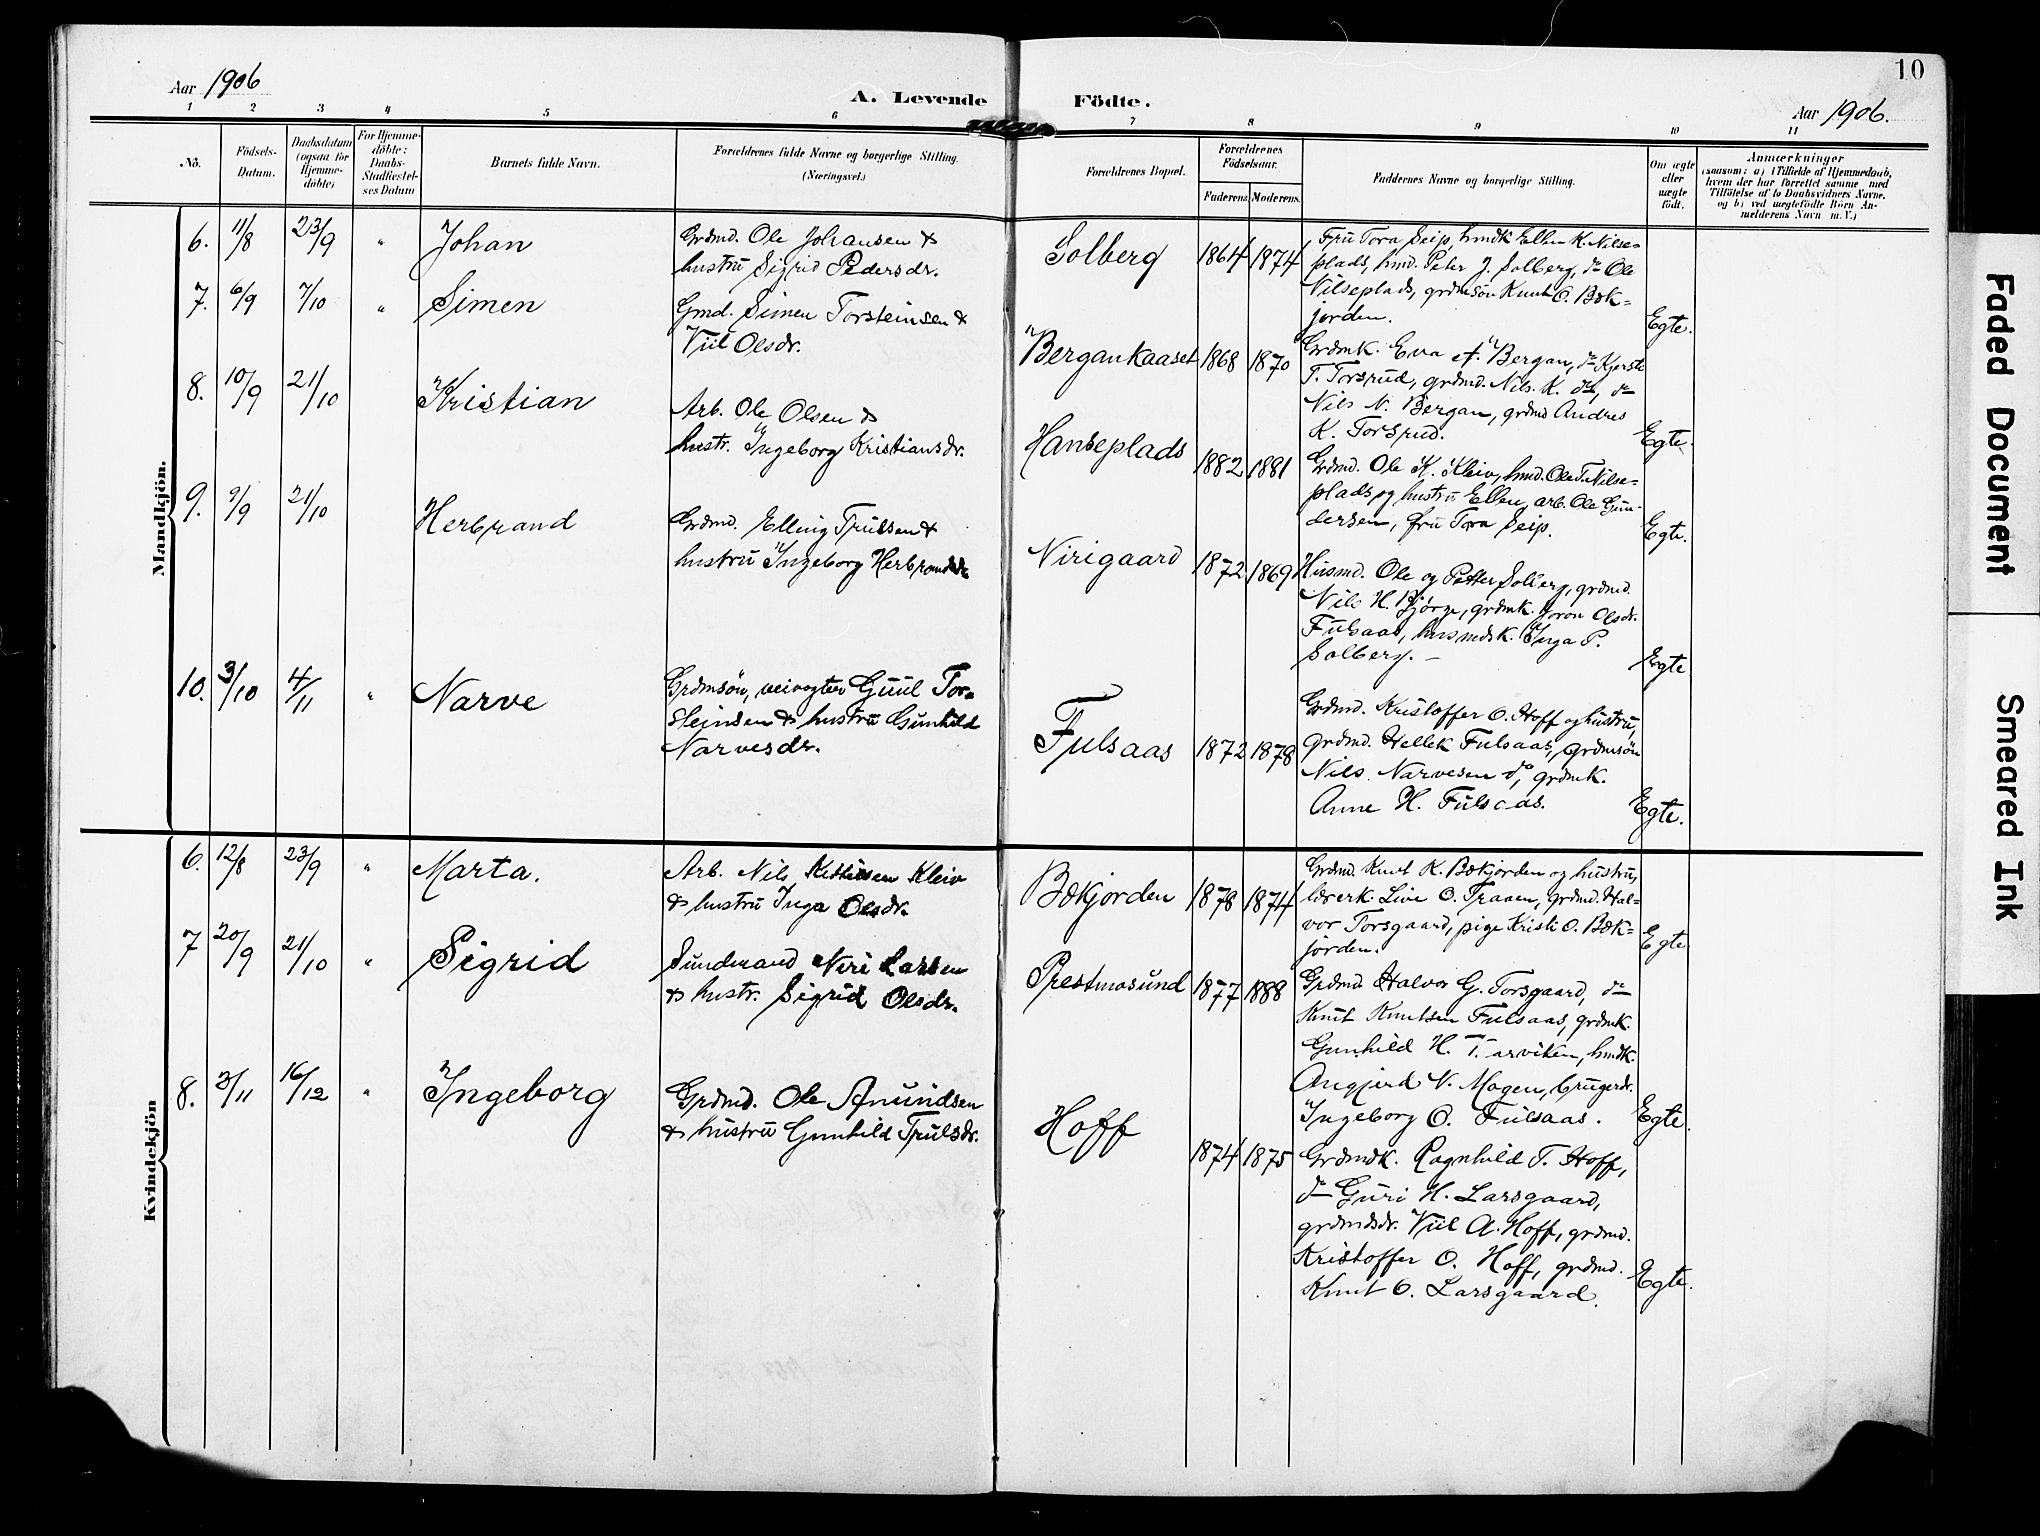 10
Aar 1906
A. Levende Födte.
Aar 1906.
1 2 3 4 5 6 7 8 9 10 11
No.
Födsels-
Datum.
Daabsdatum
(ogsaa for
Hjemme-
döbte)
For Hjemme-
döbte:
Daabs-
Stadfæstel-
ses Datum
Barnets fulde Navn.
Forældrenes fulde Navne og borgerlige Stilling.
(Næringsvei.)
Forældrenes Bopæl.
Forældrenes
Födselsaar.
Faderens. Moderens.
Faddernes Navne og borgerlige Stilling.
Om ægte
eller
uægte
födt.
Anmærkninger
(saasom: a) i Tilfælde af Hjemmedaab,
hvem der har forrettet samme med
Tilföielse af to Daabsvidners Navne,
og b) ved uægtefödte Börn An-
melderens Navn m. V.)
Mandkjön.
6. 11/8 23/9 " Johan
Grdmd. Ole Johansen &
hustru Sigrid Pedersdr.
Solberg 1864 1874
Fru Tora Seip, hmdk Ellen K. Nilse-
plads, hmd. Peter J. Solberg, do Ole
Nilseplads, grdmsøn Knut O. Bæk-
jorden.
Egte.
7. 6/9 7/10 " Simen
Gmd. Simen Torsteinsen &
Viil Olsdr.
Bergankaaset 1868 1870
Grdmk. Eva A. Bergan, do Kjersti
T. Torsrud, grdmd. Nils K. do, do
Nils N. Bergan, grdmd Andres
K. Torsrud.
Egte.
8. 10/9 21/10 Kristian
Arb. Ole Olsen &
hustr. Ingeborg Kristiansdr.
Hanseplads 1882 1881
Grdmd. Ole K. Kleiv, hmd. Ole T. Nilse-
plads og hustru Ellen, arb. Ole Gun-
dersen, fru Tora Seip.
Egte.
9. 9/9 21/10 Herbrand
Grdmd. Elling Trulsen &
hustru Ingeborg Herbrandsdr
Nirigaard 1872 1869
Husmd. Ole og Petter Solberg, grdmd.
Nils H. Bjørge, grdmk. Joron Olsdr.
Fulsaas, husmdsk. Inga P.
Solberg. –
Egte
10. 3/10 4/11 " Narve
Grdmsön, veivogter Guul Tor-
steinsen & hustru Gunhild
Narvesdr.
Fulsaas 1872 1878
Grdmd. Kristoffer O. Hoff og hustru,
grdmd. Hellek Fulsaas, grdmsön
Nils Narvesen do, grdmk.
Anne H. Fulsaas.
Egte.
Kvindekjön
6. 12/8 23/9 " Marta.
Arb. Nils Kittilsen Kleiv
& hustru Inga Olsdr.
Bækjorden 1878 1874
Grdmd. Knut K. Bækjorden og hustru,
lærerk. Live O. Traaen, grdmd. Hal-
vor Torsgaard, pige Kristi O. Bæk-
jorden.
Egte
7 20/9 21/10 " Sigrid
Sundmand Niri Larsen
& hustr. Sigrid Olsdr.
Prestmosund 1877 1888
Grdmd. Halvor G. Torsgaard, do
Knut Knutsen Fulsaas, grdmk.
Gunhild H. Tarviken, hmdk.
Angjerd N. Mogen, brugerdr.
Ingeborg O. Fulsaas.
Egte.
8. 3/11 16/12 " Ingeborg
Grdmd. Ole Anundsen
& hustru Gunhild Trulsdr.
Hoff 1874 1875
Grdmdk. Ragnhild T. Hoff,
do Guri H. Larsgaard,
grdmdsdr. Viil A. Hoff, grdmd.
Kristoffer O. Hoff, grdmd.
Knut O. Larsgaard.
Egte.
Faded Document
Smeared Ink